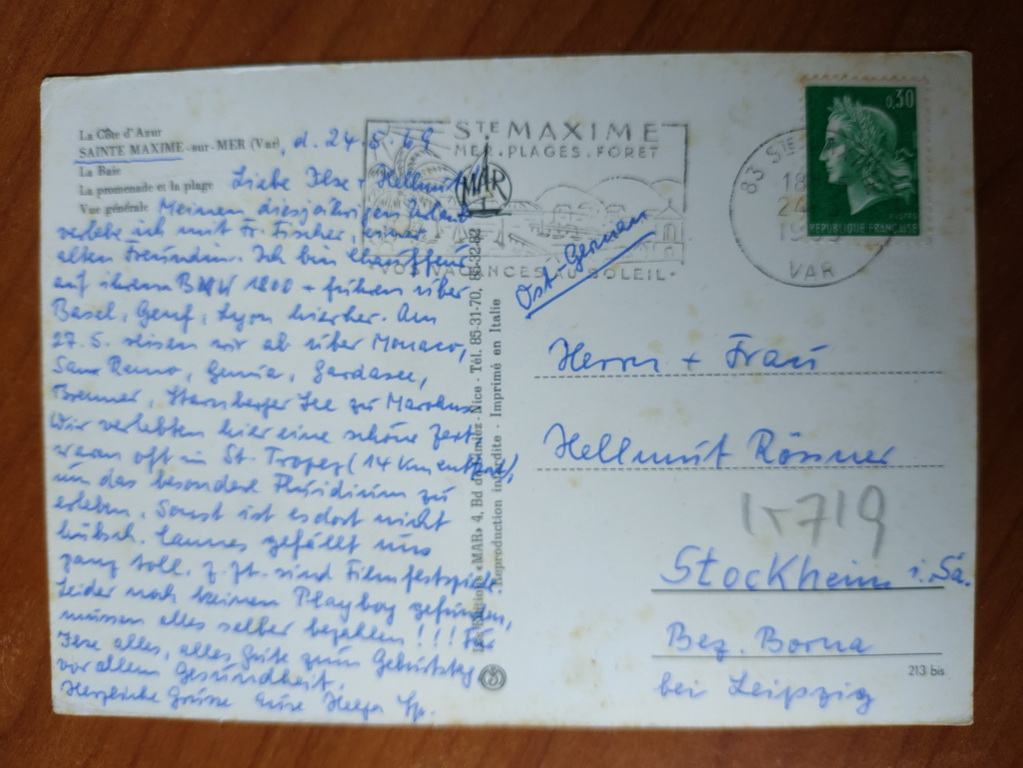 La Côte d'Azur
SAINTE MAXIME-sur-MER (Var), d. 24.5.69
La Baie
La promenade et la plage
Vue générale
Liebe Ilse + Hellmut!
Meinen diesjährigen Urlaub
verlebe ich mit Fr. Fischer, einer
alten Freundin. Ich bin Chauffeur
auf ihrem BMW 1800 + fuhren über
Basel, Genf, Lyon hierher. Am
27.5. reisen wir ab über Monaco,
San Remo, Genua, Gardasee,
Brenner, Starnberger See zu
Wir verlebten hier eine schöne Zeit
waren oft in St. Tropez (14 km entfernt),
um das besondere Fluidium zu
erleben. Sonst ist es dort nicht
hübsch. Cannes gefällt uns
ganz toll. Z. Zt. sind Filmfestspiele
Leider noch keinen Playboy gefunden,
müssen alles selber bezahlen!!! Für
Ilse alles, alles Gute zum Geburtstag
vor allem Gesundheit.
Herzliche Grüsse Eure Helga Sp.
Les Editions «MAR» 4, Bd de Cimiez - Nice - Tél. 85-31-70, 85-32-82
Reproduction interdite - Imprimé en Italie
MAR
STE MAXIME
MER. PLAGES. FORET
VOS VACANCES AU SOLEIL
83 STE
18
24
1969
VAR
0,30
POSTES
REPUBLIQUE FRANÇAISE
Ost-German
Herrn + Frau
Hellmut Rössner
15719
Stockheim i. Sa.
Bez. Borna
bei Leipzig
213 bis